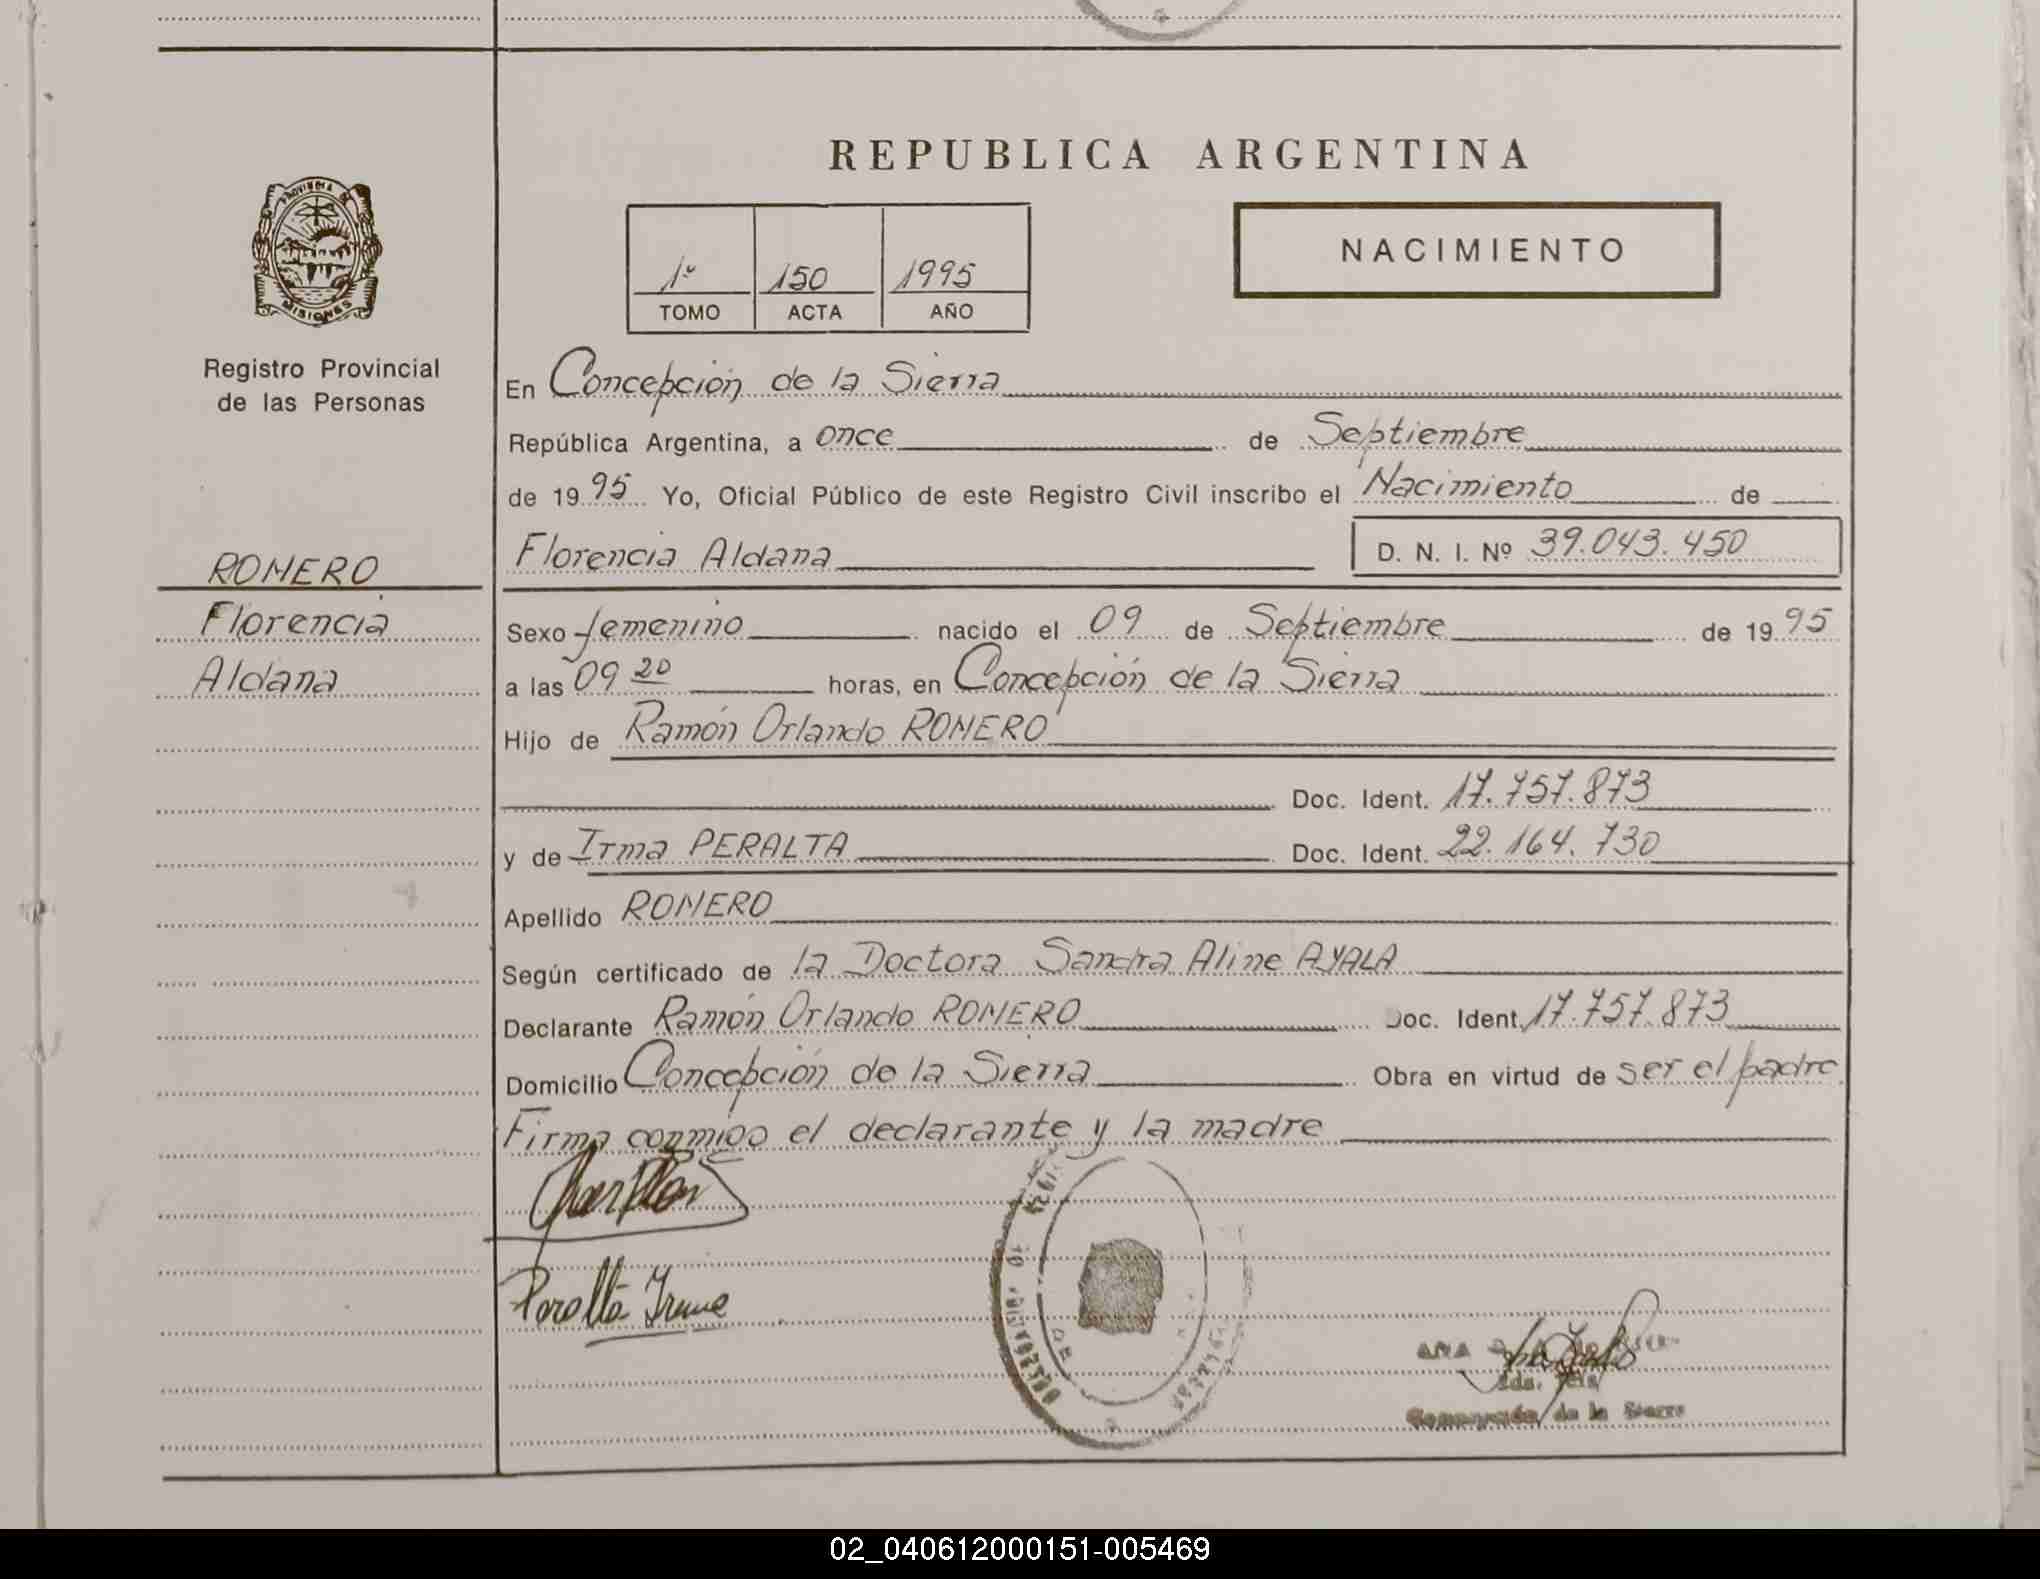 REPUBLICA ARGENTINA
PROVINCIA DE
MISIONES
Registro Provincial
de las Personas
1º 150 1995
TOMO ACTA AÑO
NACIMIENTO
En Concepción de la Sierra
República Argentina, a once de Septiembre
de 1995 Yo, Oficial Público de este Registro Civil inscribo el Nacimiento de
ROMERO
Florencia
Aldana
Florencia Aldana D. N. I. Nº 39.043.450
Sexo femenino nacido el 09 de Septiembre de 1995
a las 09 20 horas, en Concepción de la Sierra
Hijo de Ramón Orlando ROMERO
Doc. Ident. 17.757.873
y de Irma PERALTA Doc. Ident. 22.164.730
Apellido ROMERO
Según certificado de la Doctora Sandra Aline AYALA
Declarante Ramón Orlando ROMERO Doc. Ident. 17.757.873
Domicilio Concepción de la Sierra Obra en virtud de ser el padre
Firma conmigo el declarante y la madre
Peralta Irma
ANA
de la Sierra
02_040612000151-005469